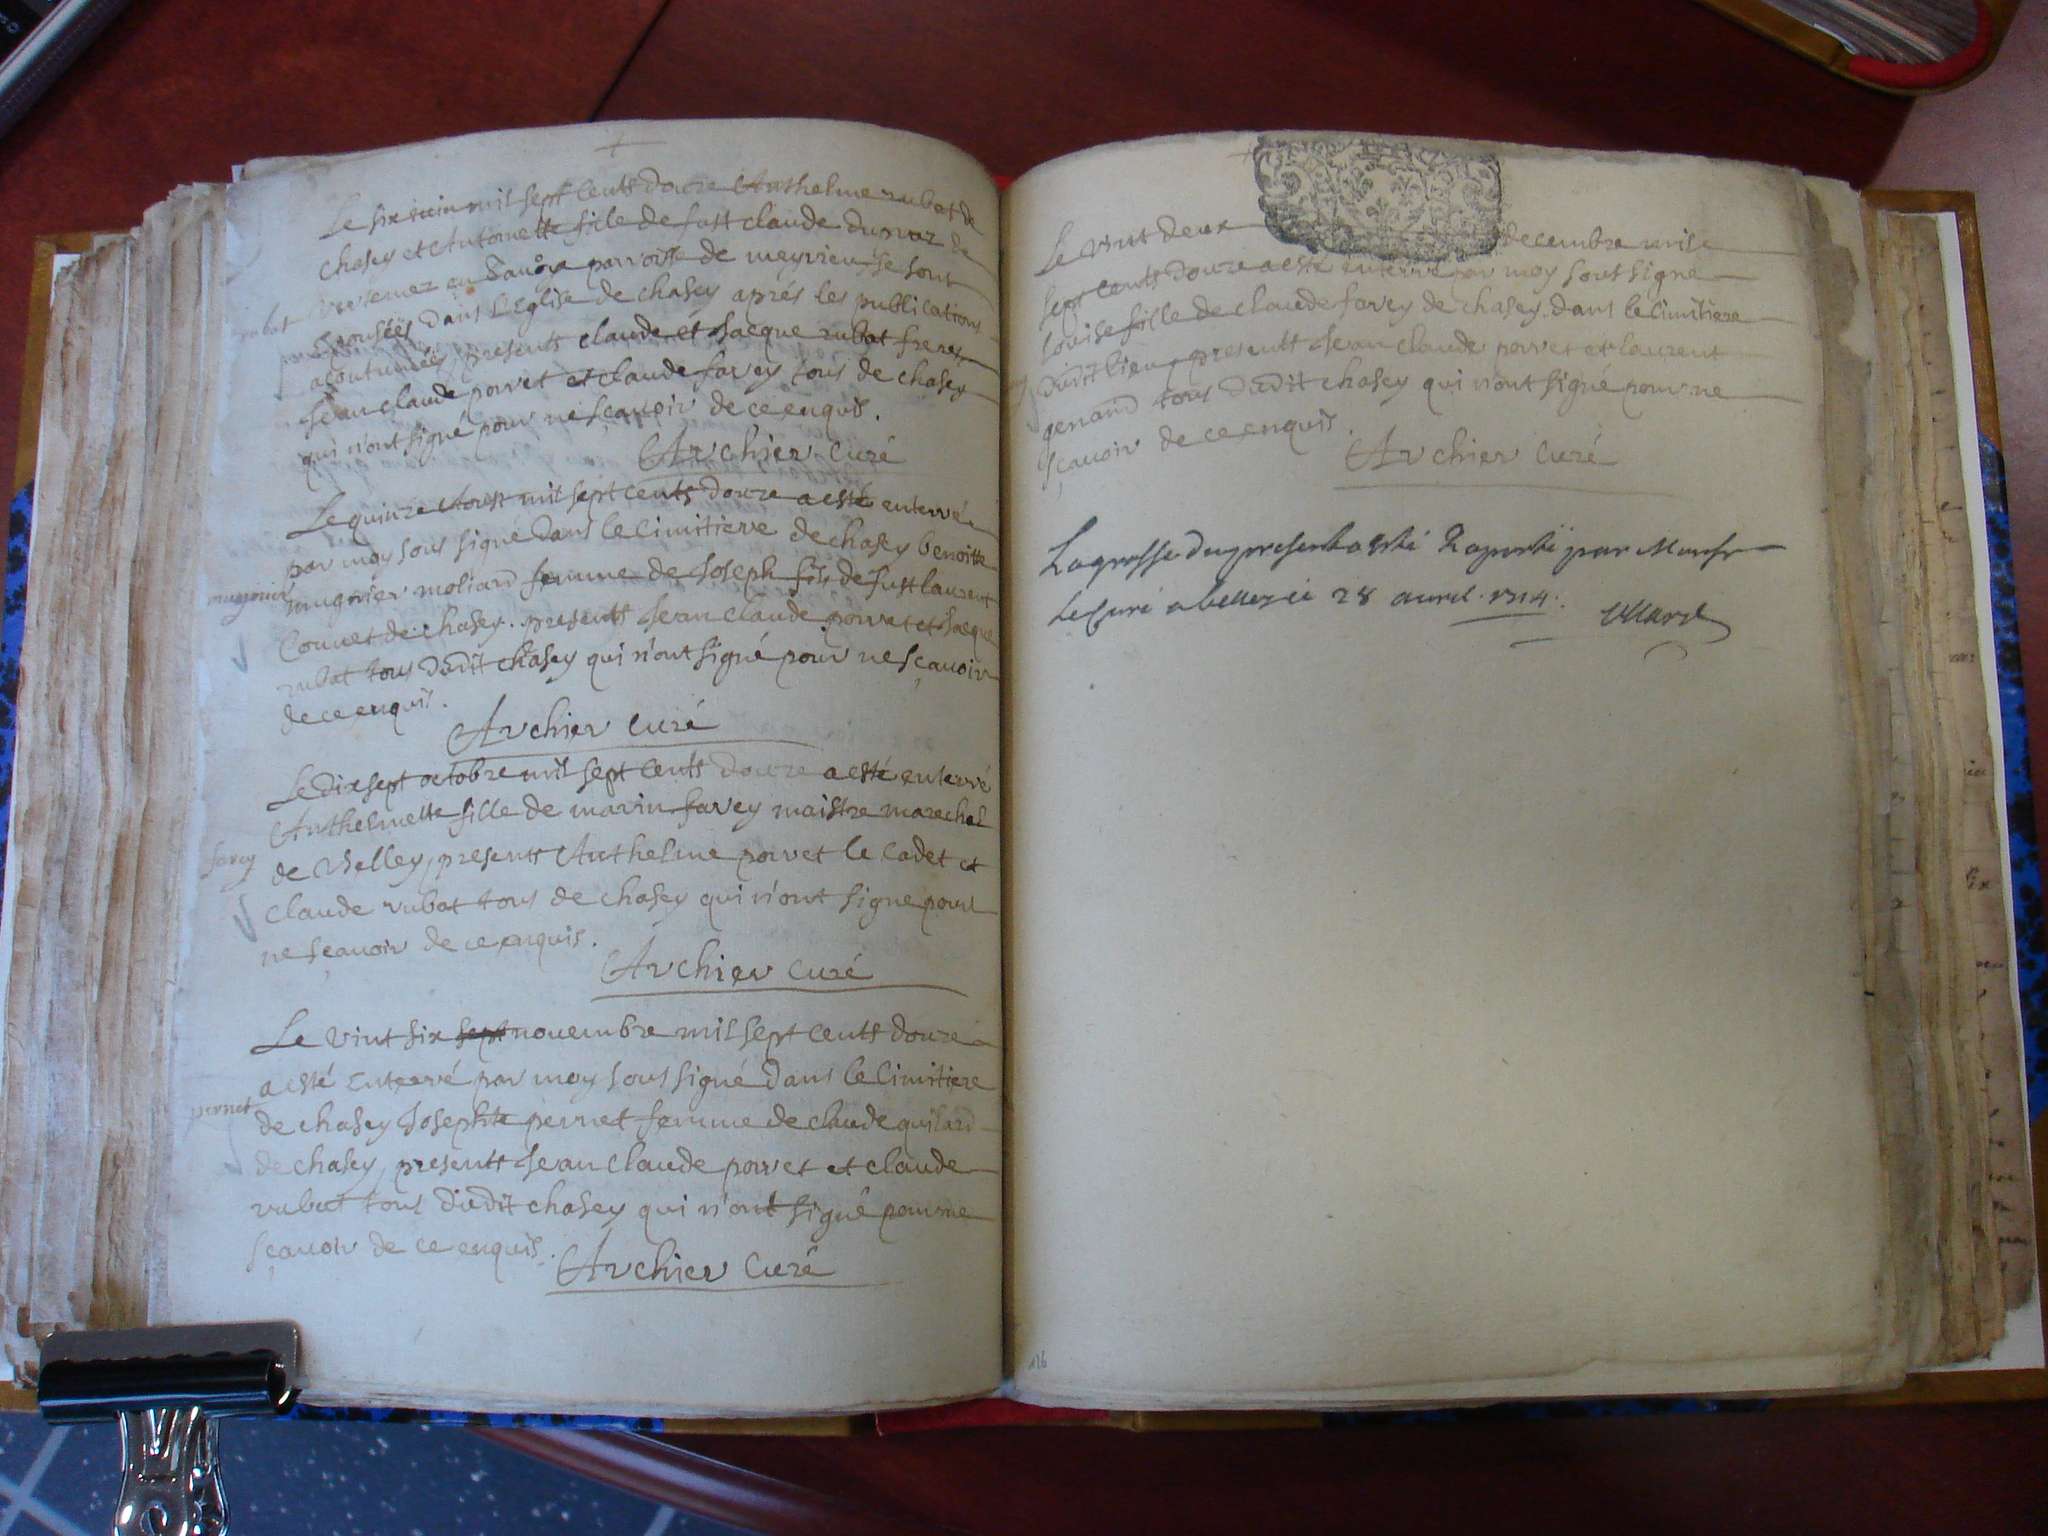 Le six juin mil sept cents douze Anthelme rubat de
chasey et Antoinette fille de fust claude
en Savoye parroisse de meyrieu, se sont
rubat
Epousées dans L'Eglise de chasey aprés les publications
acoutumées, presents claude et Jacque rubat freres
Jean claude porret et claude favey tous de chasey
qui n'ont signé pour ne sçavoir de ce enquis.
Archier curé
Le quinze Aoust mil sept cents douze a esté enterrée
par moy sous signé dans le Cimitiere de chasey benoitte
mugnier
mugnier moliard femme de Joseph fils de fust laurent
Comet de chasey. presents Jean claude porret et Jacque
rubat tous dudit chasey qui n'ont signé pour ne sçavoir
de ce enquis.
Archier curé
Le dix sept octobre mil sept cents douze a esté enterré
Anthelmette fille de marin favey maistre marechal
favey
de Belley, presents Anthelme porret le cadet et
claude rubat tous de chasey qui n'ont signe pour
ne sçavoir de ce enquis.
Archier curé
Le vint six sept novembre mil sept cents douze
a esté enterré par moy sous signé dans le Cimitiere
pernet
de chasey Josephte pernet femme de claude quilard
de chasey, presents Jean claude porret et claude
rubat tous dudit chasey qui n'ont signé pour ne
sçavoir de ce enquis.
Archier Curé
Le vint deux decembre mile
sept cents douze a esté enterré par moy sous signé
Louise fille de claude favey de chasey dans le Cimitiere
dudit lieu, presents Jean claude porret et laurent
genand tous dudit chasey qui n'ont signé pour ne
sçavoir de ce enquis.
Archier Curé
La grosse du present a esté Raporté par Monsr
Le Curé a belley ce 28 avril 1714.
116